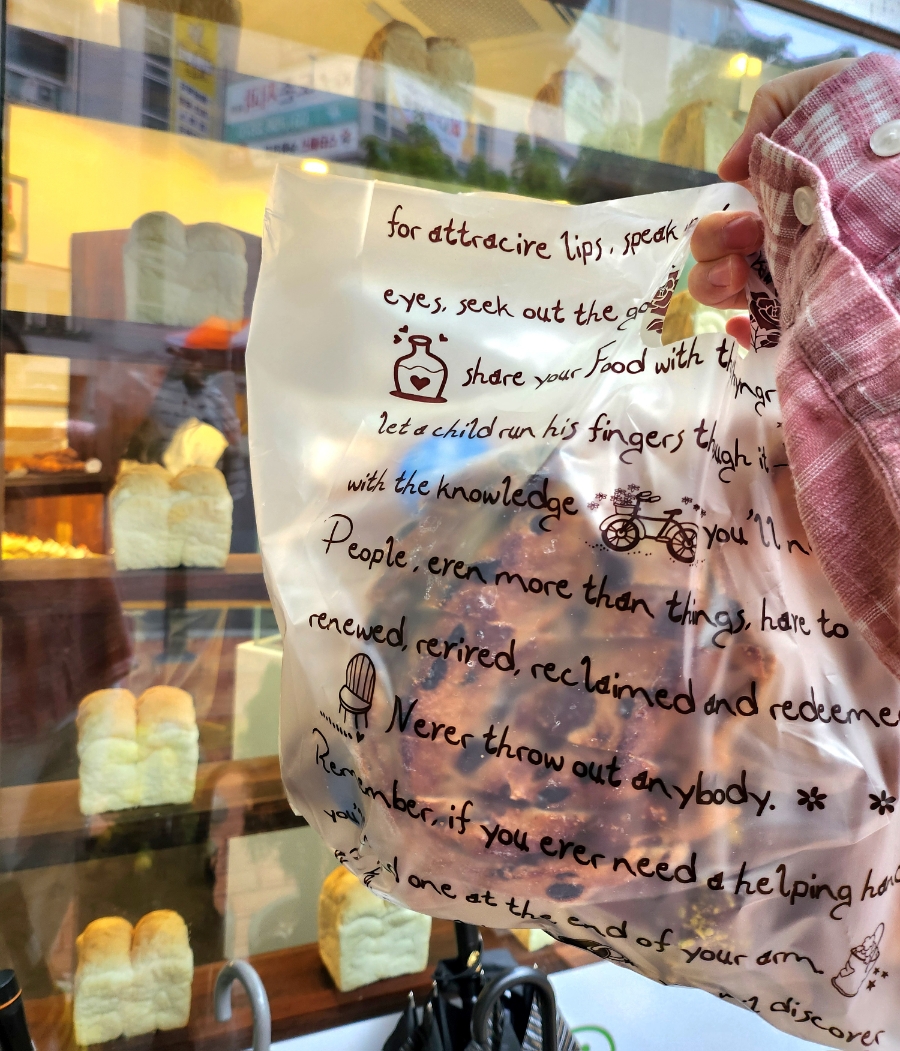 for attracire lips, speak
eyes, seek out the go
share your Food with th hyngr
let a child run his fingers though it
with the knowledge you'll n
People, eren more than things, hare to
renewed, rerired, reclaimed and redeeme
Nerer throw out anybody.
Remember, if you erer need a helping han
you'
one at the end of your arm.
discover